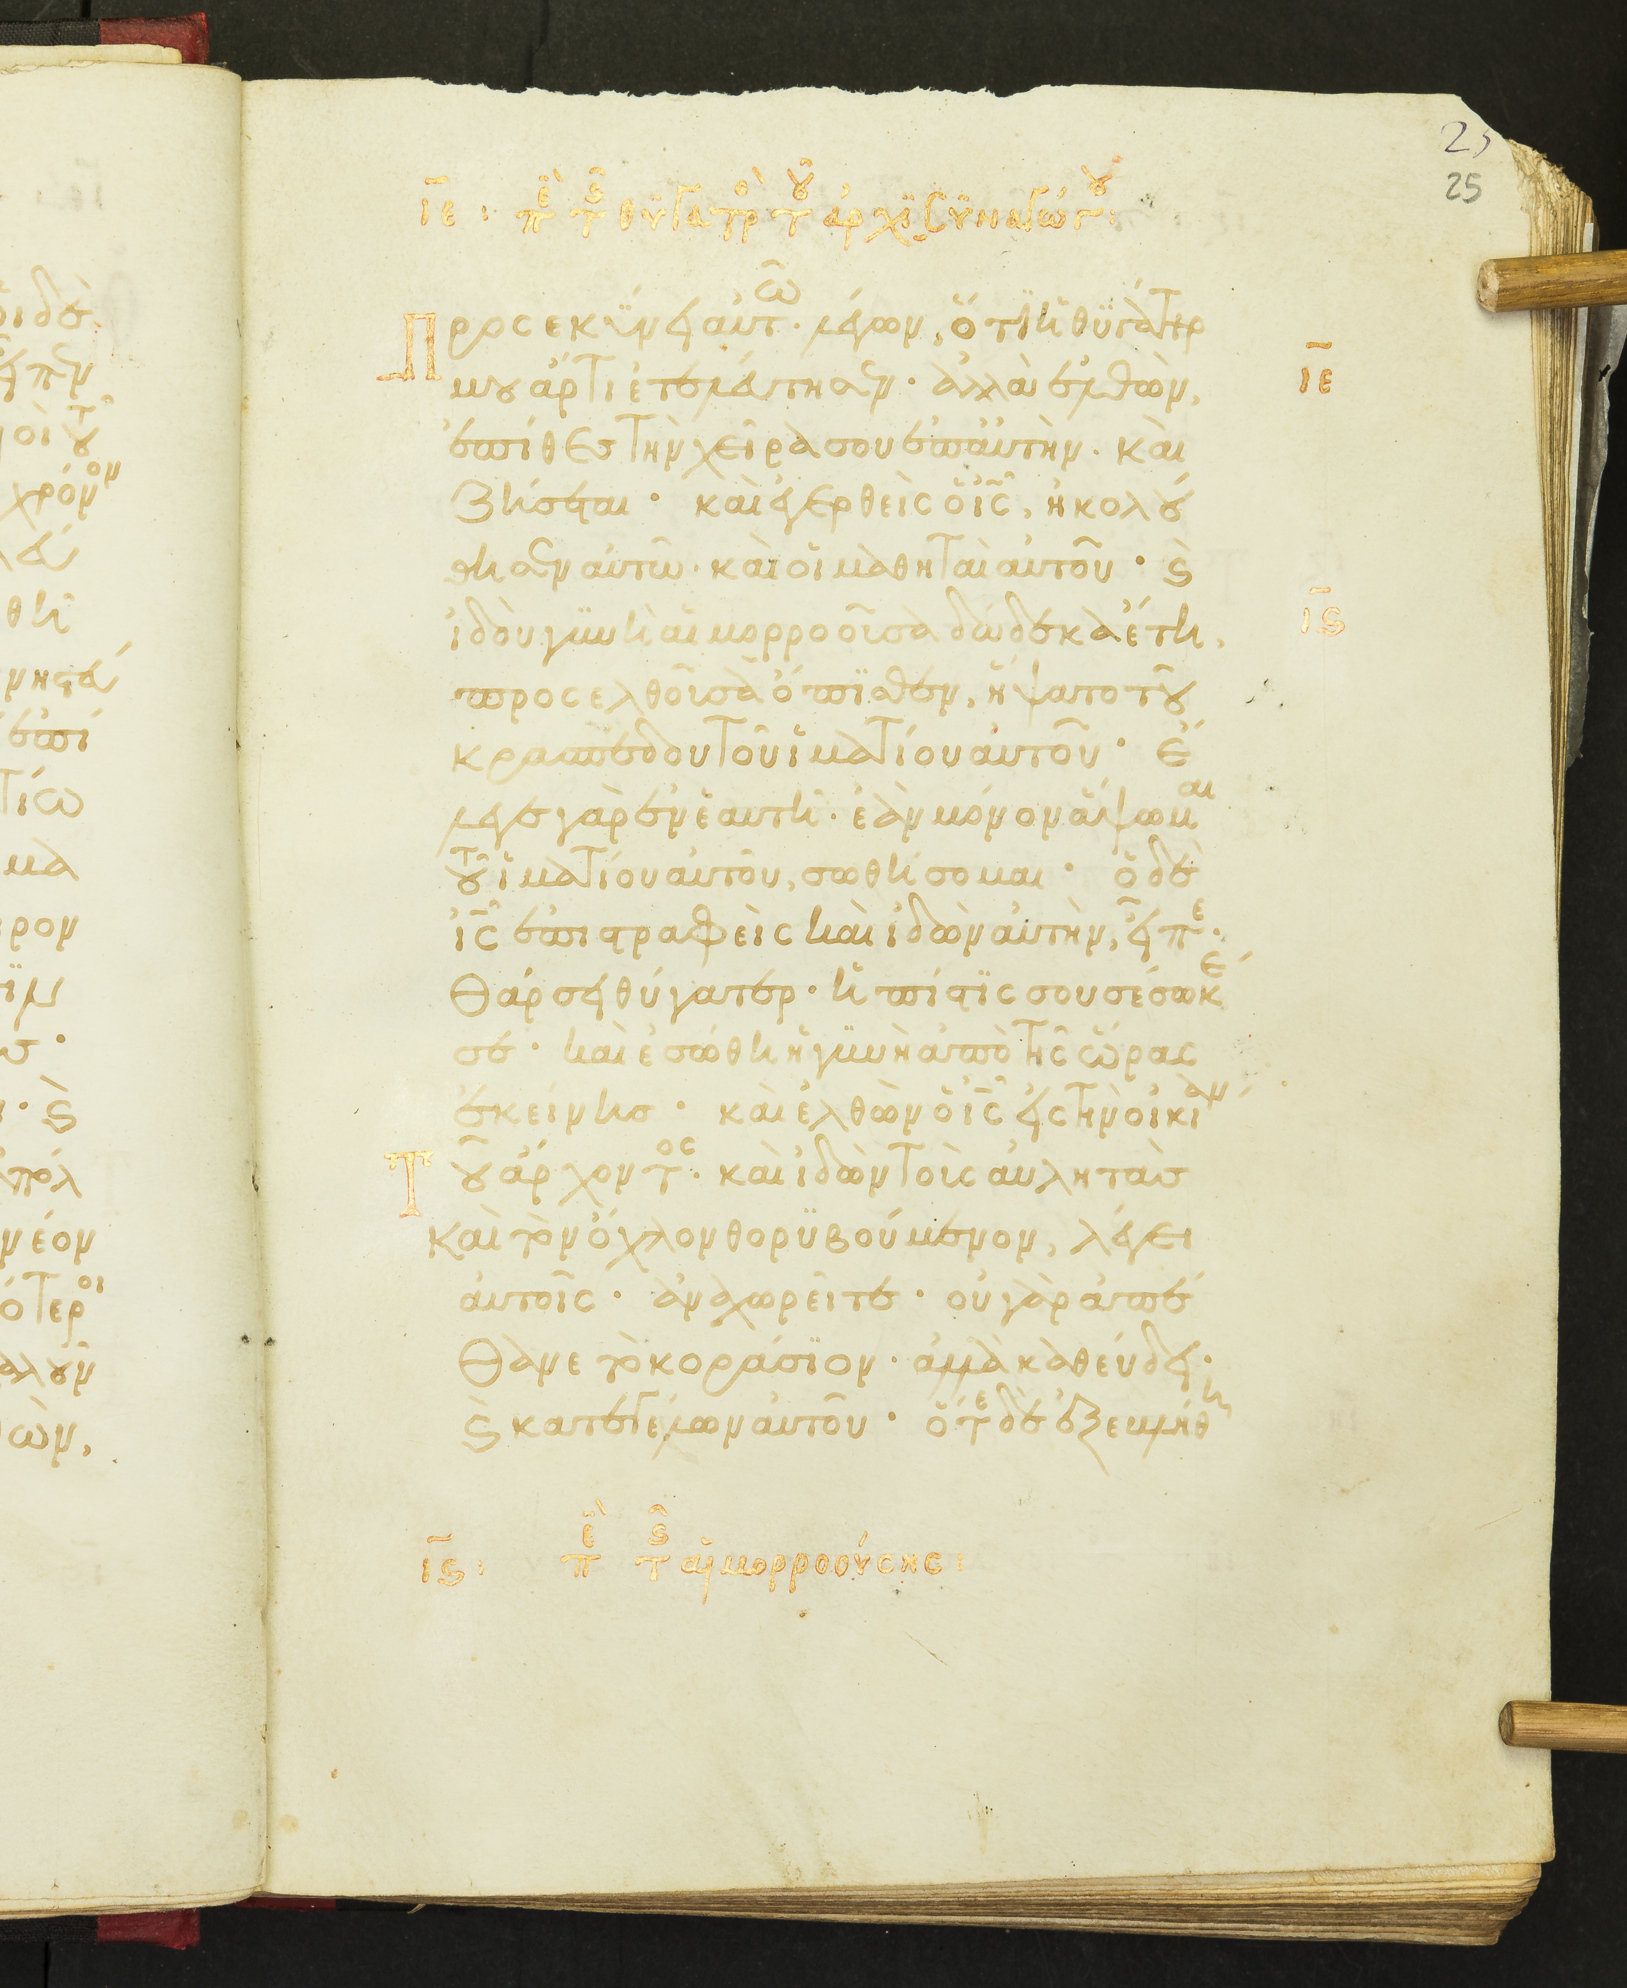 25
25
ιε : πε τς θυγατρὸ τοῦ ἀρχισυναγώγου :
Προσεκύνει αὐτῶ · λέγων, ὅτι ἡ θυγάτηρ
μου ἄρτι ἐτελεύτησεν · ἀλλὰ ἐλθὼν,
ἐπίθες τὴν χεῖρα σου ἐπ αὐτὴν · καὶ
ζήσεται · καὶ ἐγερθεὶς ὁ ις, ἠκολού
θησεν αὐτῶ · καὶ οἱ μαθηταὶ αὐτοῦ · ϛ
ιε
ἰδοὺ γυνὴ αἱμορροοῦσα δώδεκα ἔτη,
ιϛ
προσελθοῦσα ὄπισθεν, ἥψατο τοῦ
κρασπέδου τοῦ ἱματίου αὐτοῦ · ἔ
λεγε γὰρ ἐν ἑαυτῆ · ἐὰν μόνον ἅψωμαι
τοῦ ἱματίου αὐτοῦ, σωθήσομαι · ὁ δὲ
ις ἐπιστραφεὶς καὶ ἰδὼν αὐτὴν, εἶπε ·
Θάρσει θύγατερ · ἡ πίστις σου σέσωκέ
σε · καὶ ἐσώθη ἡ γυνὴ ἀπὸ τῆς ὥρας
ἐκείνης · καὶ ἐλθὼν ὁ ις εἰς τὴν οἰκίαν
Τοῦ ἄρχοντος · καὶ ἰδὼν τοὺς αὐλητὰς
καὶ τὸν ὄχλον θορυβούμενον, λέγει
αὐτοῖς · ἀναχωρεῖτε · οὐ γὰρ ἀπέ
θανε τὸ κοράσιον · ἀλλὰ καθεύδει ·
ϛ κατεγέλων αὐτοῦ · ὅτε δὲ ἐξεβλήθη
ιϛ : πε τς αἱμορροούσης :